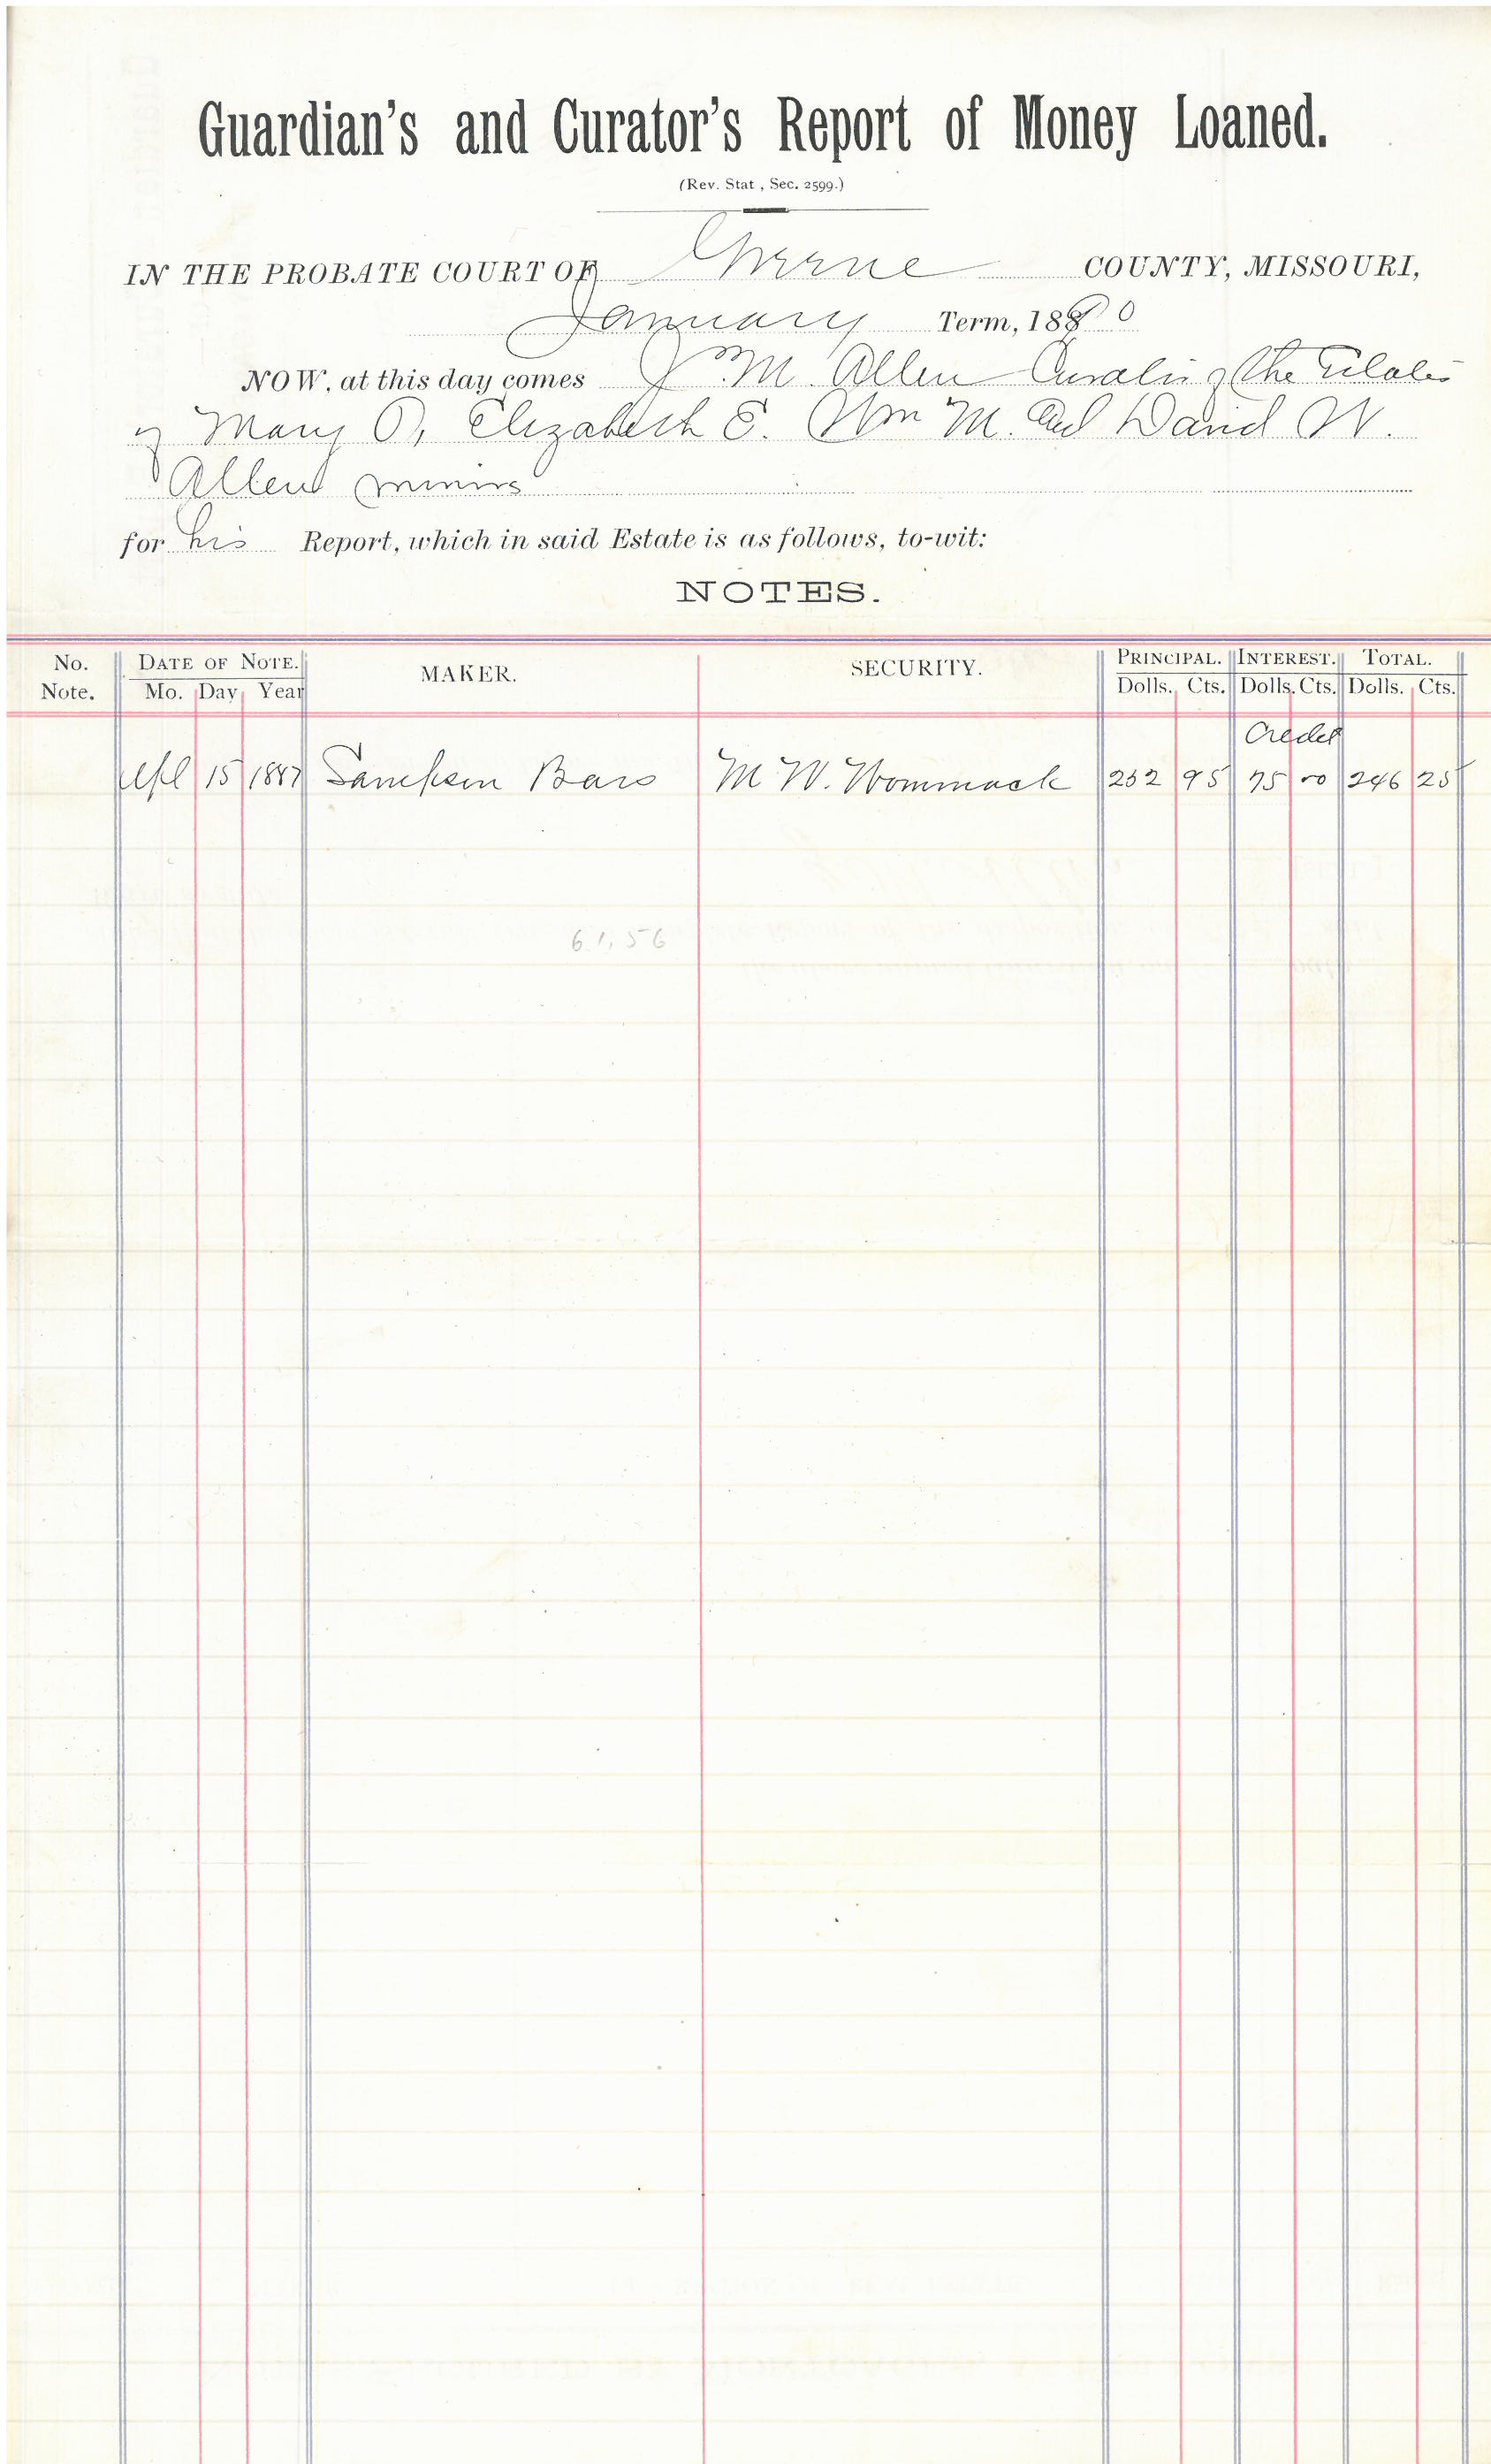 Guardian's and Curator's Report of Money Loaned.
(Rev. Stat, Sec. 2599.)
IN THE PROBATE COURT OF Greene COUNTY, MISSOURI,
January Term, 1890
NOW, at this day comes J. M. Allen Curator of the Estates
of Mary O, Elizabeth E. Wm M. and David W.
Allen minors
for his Report, which in said Estate is as follows, to-wit:
NOTES.
No. Note. DATE OF NOTE. Mo. Day Year MAKER. SECURITY. PRINCIPAL. Dolls. Cts. INTEREST. Dolls. Cts. TOTAL. Dolls. Cts.
Credit
15 1887 Sampson Bass M W. Wommack 252 95 75 00 246 25
61.56